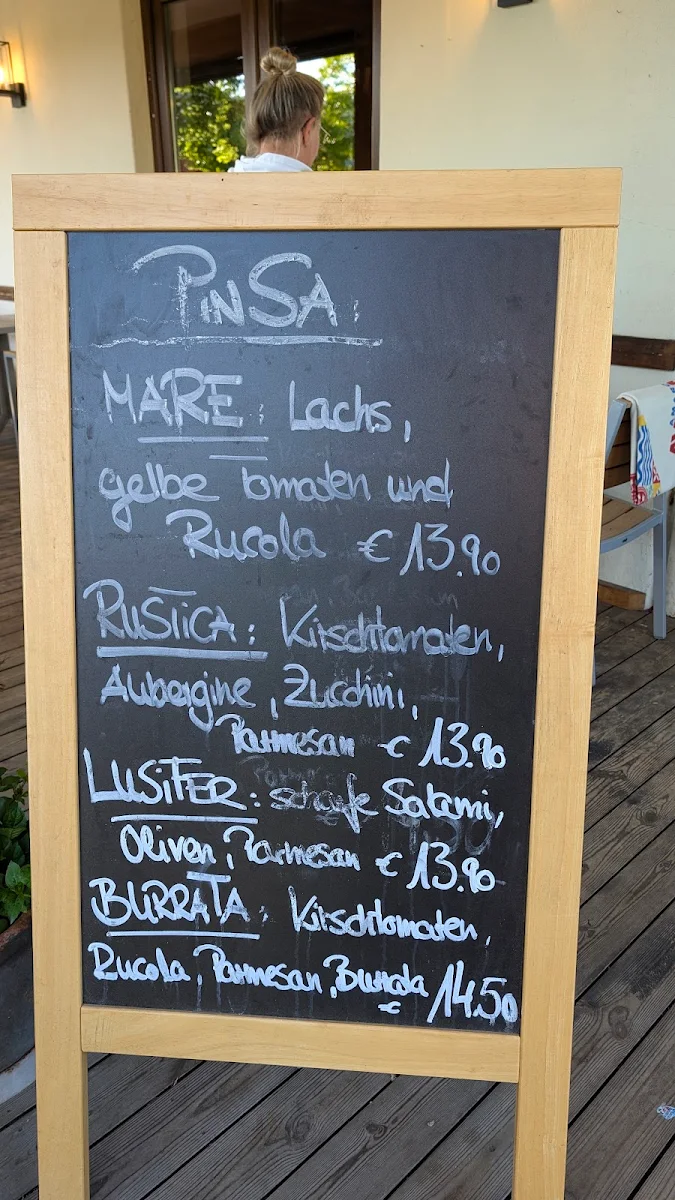 PINSA:
MARE: Lachs,
gelbe tomaten und
Rucola € 13.90
RUSTICA: Kirschtomaten,
Aubergine, Zucchini,
Parmesan € 13.90
LUSIFER: scharfe Salami,
Oliven, Parmesan € 13.90
BURRATA: Kirschtomaten,
Rucola, Parmesan, Burrata € 14.50